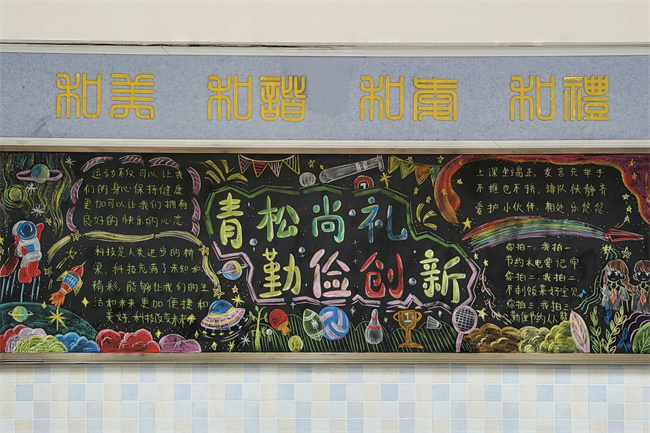 和美 和諧 和惠 和禮
运动不仅可以让我
们的身心保持健康
更加可以让我们拥有
良好的快乐的心态
科技是人类进步的桥
梁,科技充满了未知和
精彩,能够让我们的生
活和未来更加便捷和
美好,科技改变未来
青松尚礼
勤俭创新
上课坐端正,发言先举手
不推也不挤,排队快静齐
爱护小伙伴,相处乐悠悠
你拍一,我拍一
节约水电要记牢
你拍二,我拍二
你拍三,我拍三